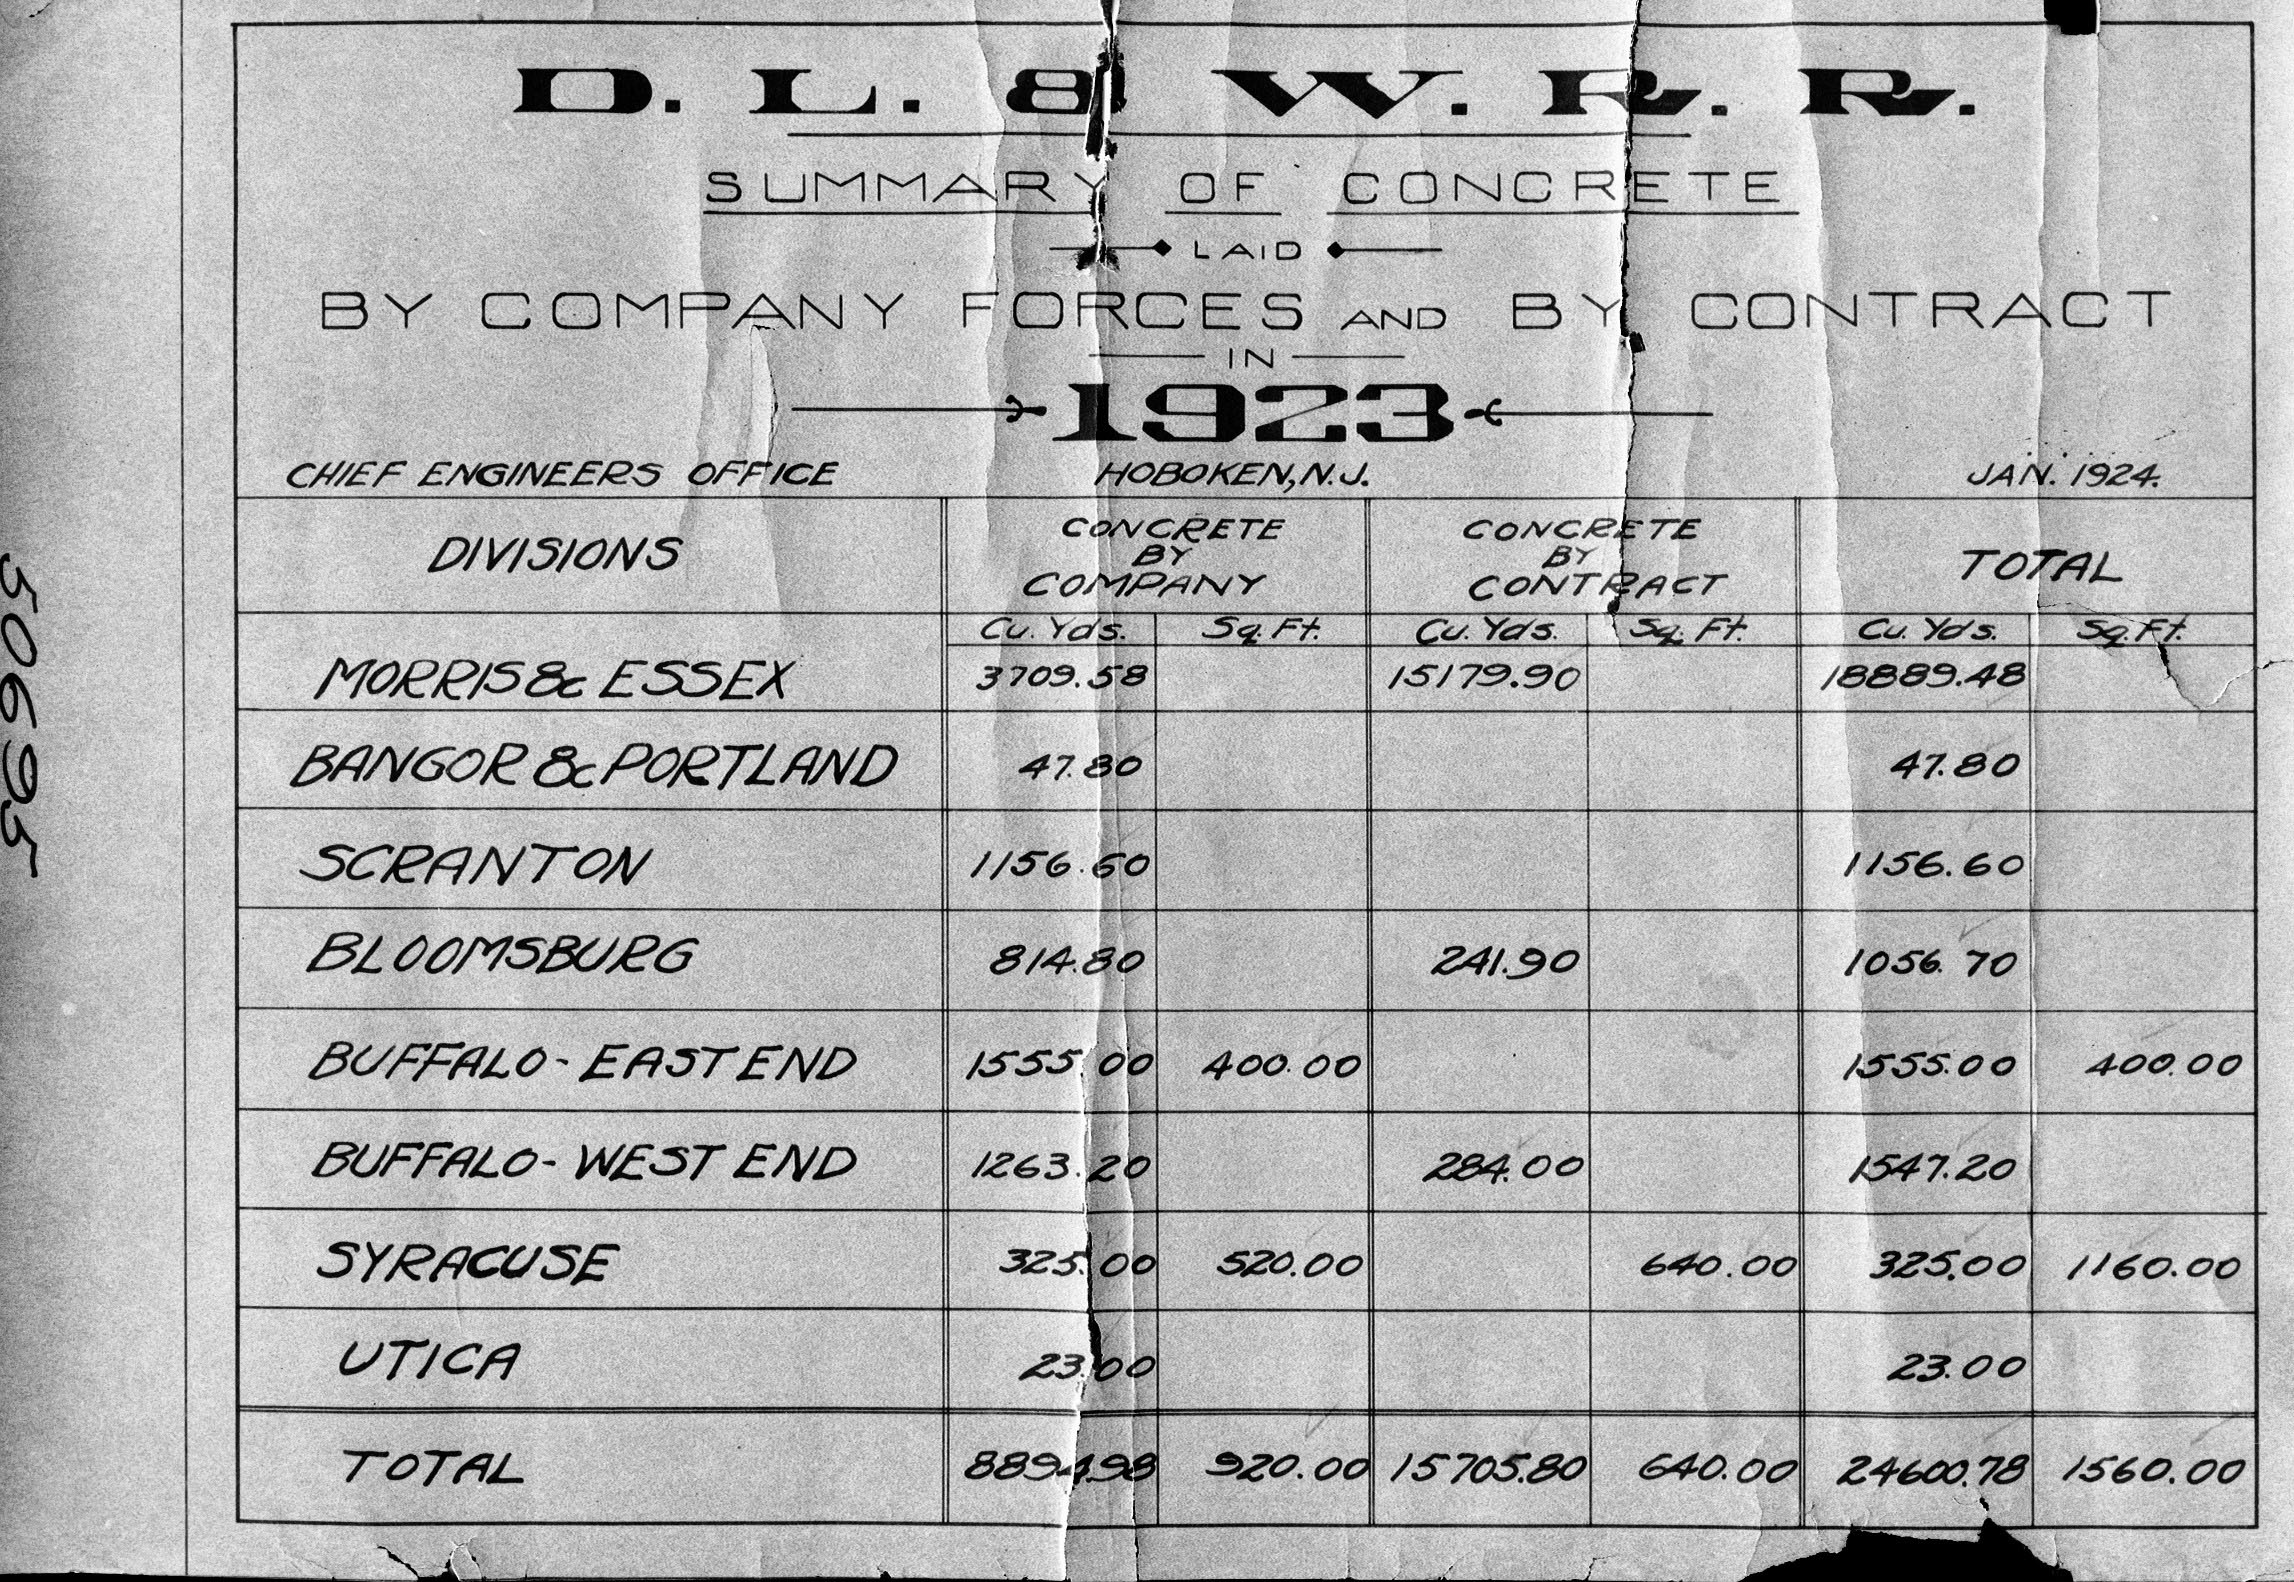 D. L. & W. R. R.
SUMMARY OF CONCRETE
LAID
BY COMPANY FORCES AND BY CONTRACT
IN
1923
CHIEF ENGINEERS OFFICE HOBOKEN, N.J. JAN. 1924.
DIVISIONS CONCRETE BY COMPANY CONCRETE BY CONTRACT TOTAL
Cu. Yds. Sq. Ft. Cu. Yds. Sq. Ft. Cu. Yds. Sq. Ft.
MORRIS & ESSEX 3709.58 15179.90 18889.48
BANGOR & PORTLAND 47.80 47.80
SCRANTON 1156.60 1156.60
BLOOMSBURG 814.80 241.90 1056.70
BUFFALO - EAST END 1555.00 400.00 1555.00 400.00
BUFFALO - WEST END 1263.20 284.00 1547.20
SYRACUSE 325.00 520.00 640.00 325.00 1160.00
UTICA 23.00 23.00
TOTAL 8894.98 920.00 15705.80 640.00 24600.78 1560.00
50695